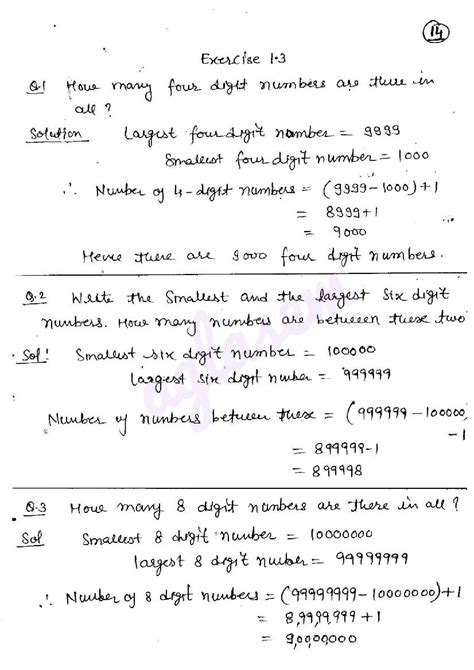 14
Exercise 1.3
Q.1 How many four digit numbers are there in
all ?
Solution Largest four digit number = 9999
Smallest four digit number = 1000
∴ Number of 4-digit numbers = (9999-1000)+1
= 8999+1
= 9000
Hence there are 9000 four digit numbers.
Q.2 Write the Smallest and the largest Six digit
numbers. How many numbers are between these two
Sol! Smallest six digit number = 100000
largest six digit number = 999999
Number of numbers between these = (999999-100000)
-1
= 899999-1
= 899998
Q.3 How many 8 digit numbers are there in all ?
Sol Smallest 8 digit number = 10000000
largest 8 digit number = 99999999
∴ Number of 8 digit numbers = (99999999-10000000)+1
= 8,99,99,999 +1
= 9,00,00,000